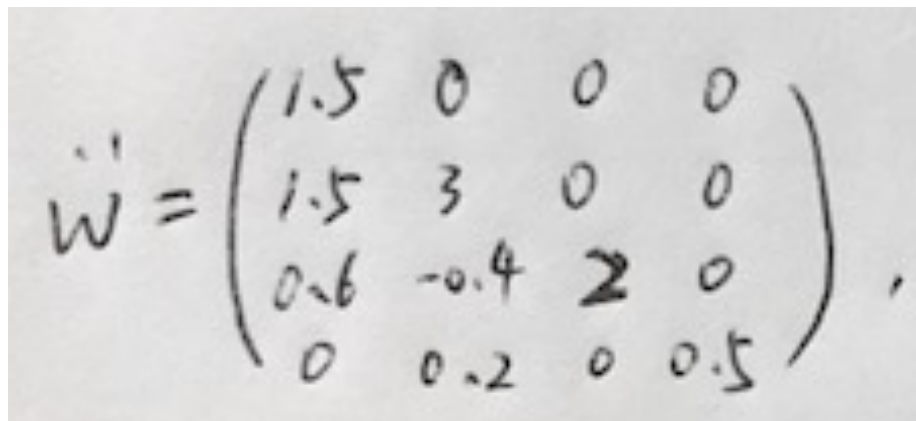 1.5 0 0 0
1.5 3 0 0
Ẅ = 0.6 -0.4 2 0 ,
0 0.2 0 0.5